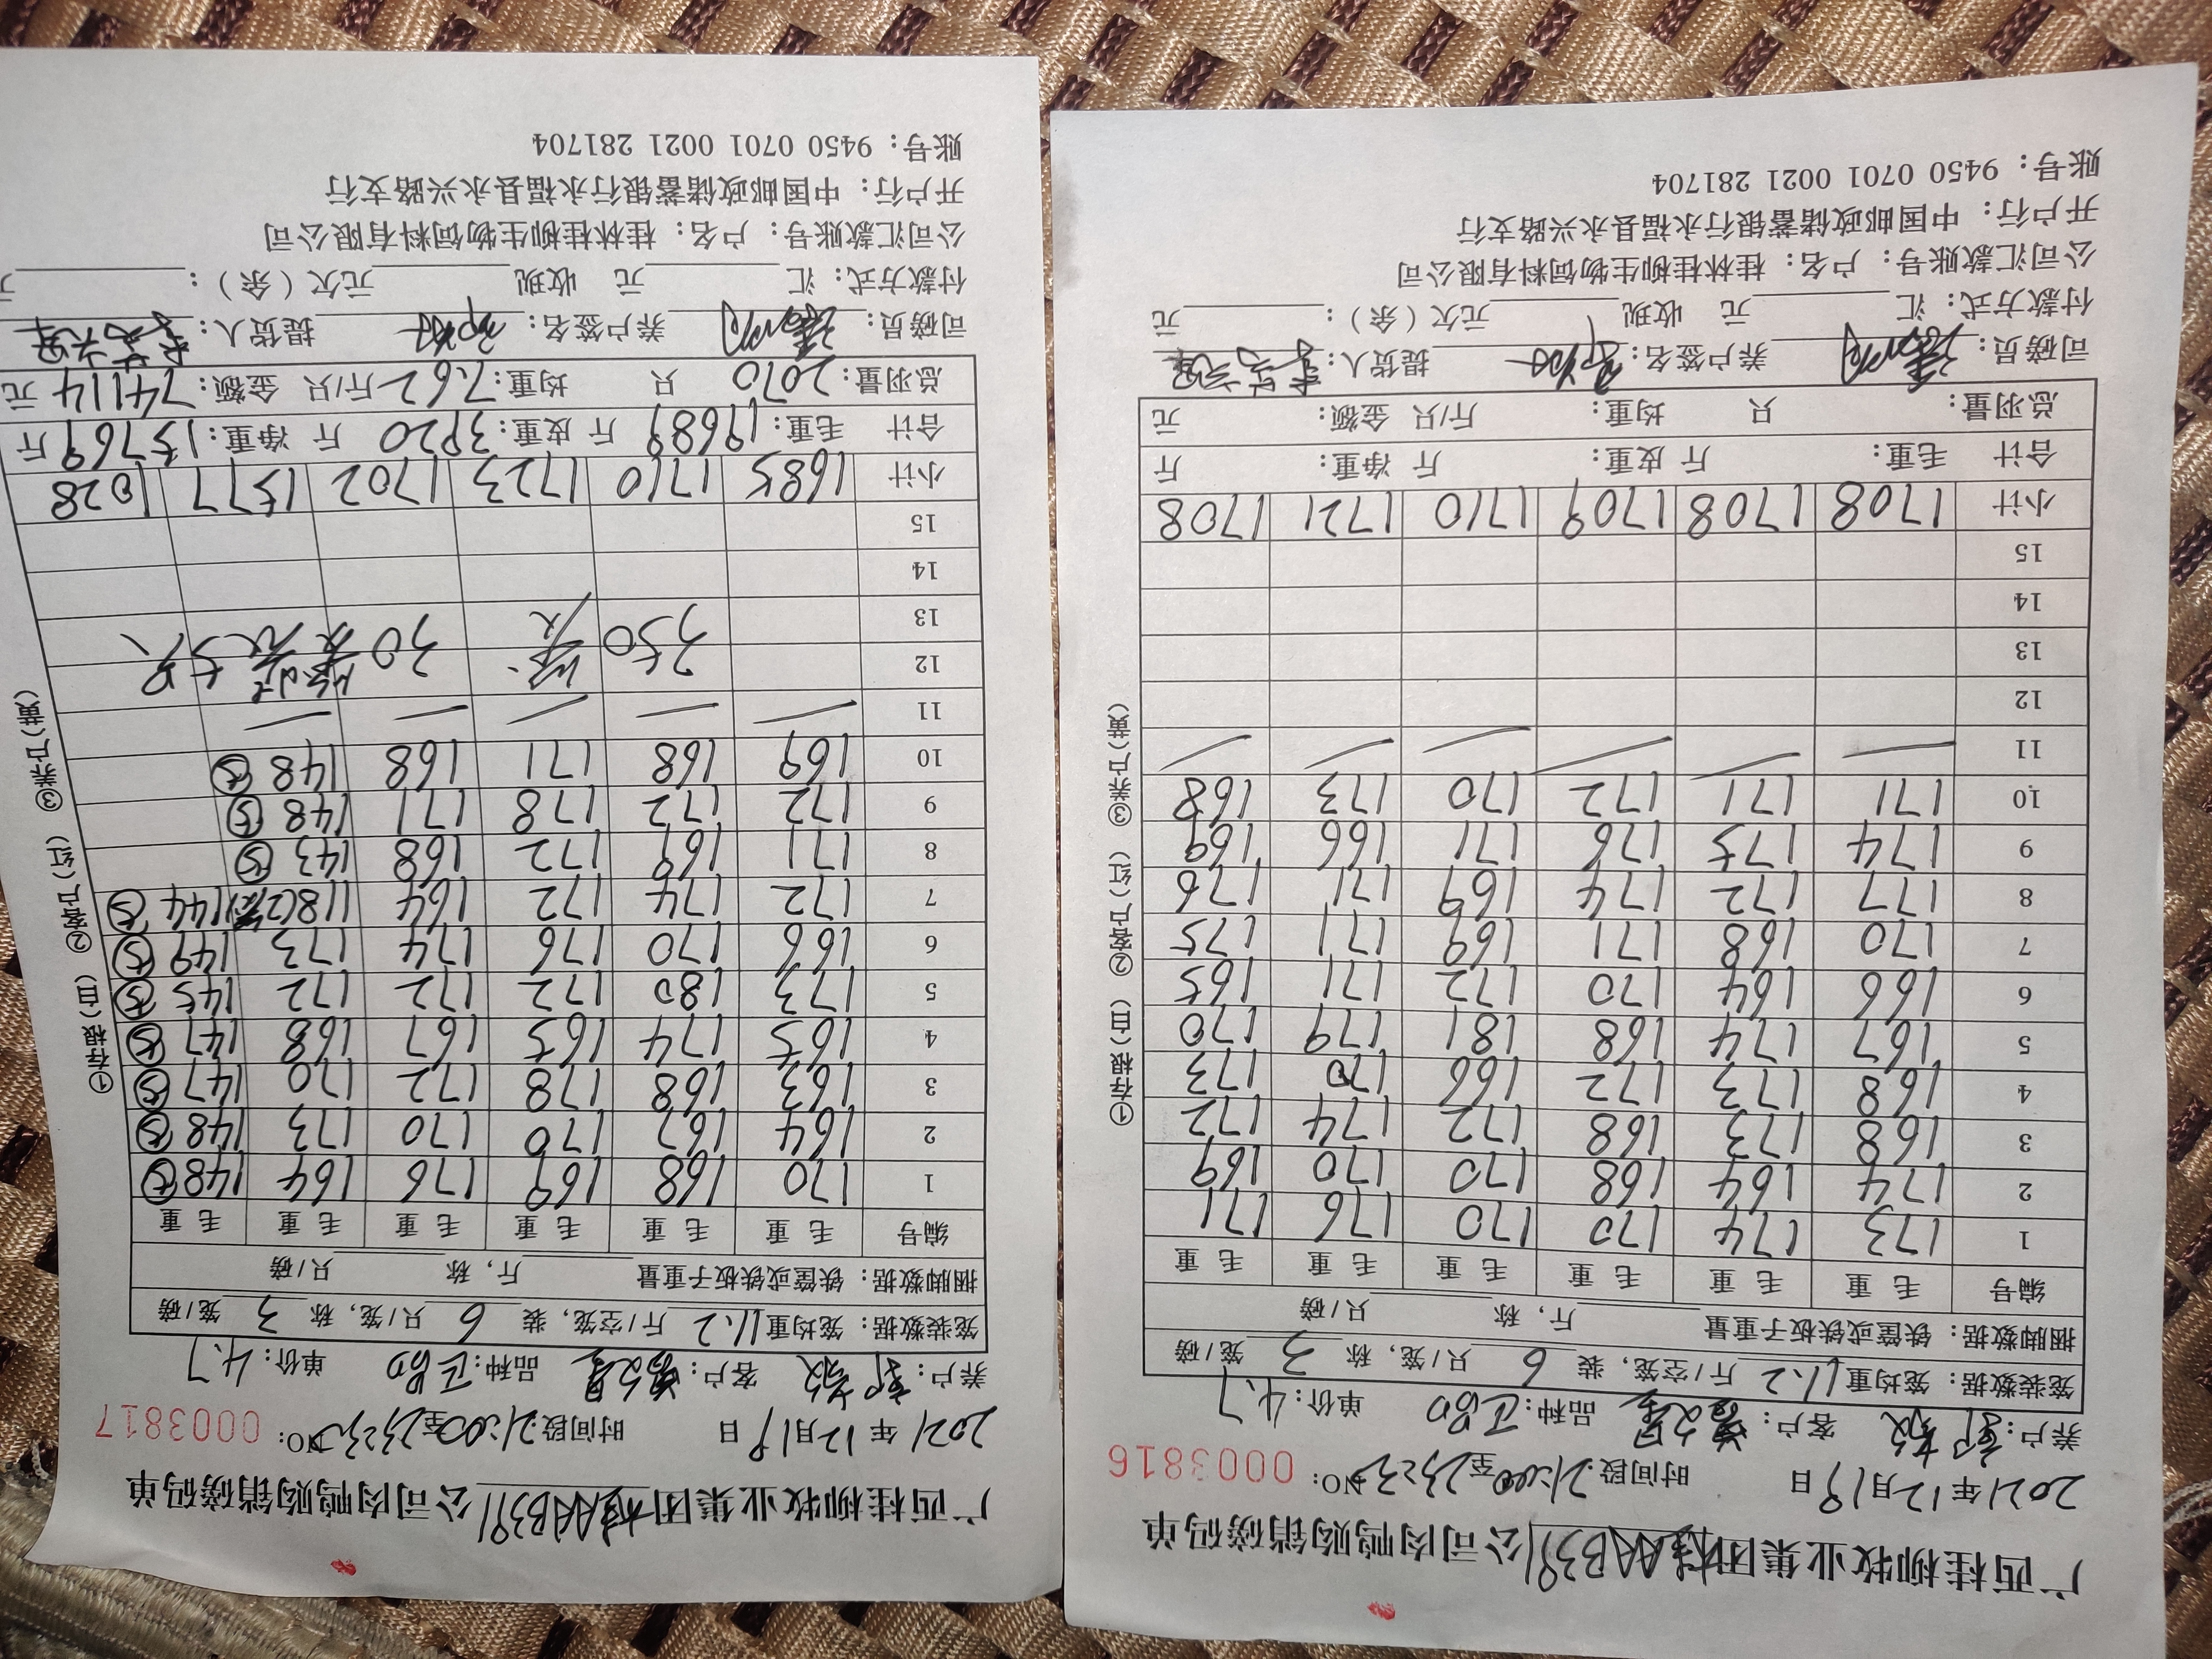 广西桂柳牧业集团桂AAB391公司肉鸭购销磅码单
2021年12月19日 时间段:21:00至 NO: 0003816
养户: 客户: 品种: 正品 单价: 4.7
笼装数据: 笼均重11.2斤/空笼, 装6只/笼, 称3笼/磅
捆脚数据: 铁筐或铁板子重量 斤, 称 只/磅
编号 毛重 毛重 毛重 毛重 毛重 毛重
1 173 174 170 170 176 171
2 174 164 168 170 170 169
3 168 173 168 172 174 172
4 168 173 172 166 170 173
5 167 174 168 181 179 170
6 166 164 170 172 171 165
7 170 168 171 169 171 175
8 177 172 174 169 171 176
9 174 175 176 171 166 169
10 171 171 172 170 173 168
11
12
13
14
15
小计 1708 1708 1709 1710 1721 1708
合计 毛重: 斤 皮重: 斤 净重: 斤
总羽量: 只 均重: 斤/只 金额: 元
司磅员: 养户签名: 提货人:
付款方式: 汇 元 收现 元欠(余): 元
公司汇款账号: 户名: 桂林桂柳生物饲料有限公司
开户行: 中国邮政储蓄银行永福县永兴路支行
账号: 9450 0701 0021 281704
①存根(白) ②客户(红) ③养户(黄)
广西桂柳牧业集团桂AAB391公司肉鸭购销磅码单
2021年12月19日 时间段:21:00至 NO: 0003817
养户: 客户: 品种: 正品 单价: 4.7
笼装数据: 笼均重11.2斤/空笼, 装6只/笼, 称3笼/磅
捆脚数据: 铁筐或铁板子重量 斤, 称 只/磅
编号 毛重 毛重 毛重 毛重 毛重 毛重
1 170 168 169 176 164 148⑤
2 164 167 170 170 173 148⑤
3 163 168 178 172 170 147⑤
4 165 174 165 167 168 147⑤
5 173 180 172 172 172 145⑤
6 166 170 176 174 173 149⑤
7 172 174 172 164 118(2笼) 144⑤
8 171 169 172 168 143⑤
9 172 172 178 171 148⑤
10 169 168 171 168 148⑤
11
12
13
14
15
350 30
小计 1685 1710 1723 1702 1577 1028
合计 毛重: 19689斤 皮重: 3920斤 净重: 15769斤
总羽量: 2070只 均重: 7.62斤/只 金额: 74114元
司磅员: 养户签名: 提货人:
付款方式: 汇 元 收现 元欠(余): 元
公司汇款账号: 户名: 桂林桂柳生物饲料有限公司
开户行: 中国邮政储蓄银行永福县永兴路支行
账号: 9450 0701 0021 281704
①存根(白) ②客户(红) ③养户(黄)